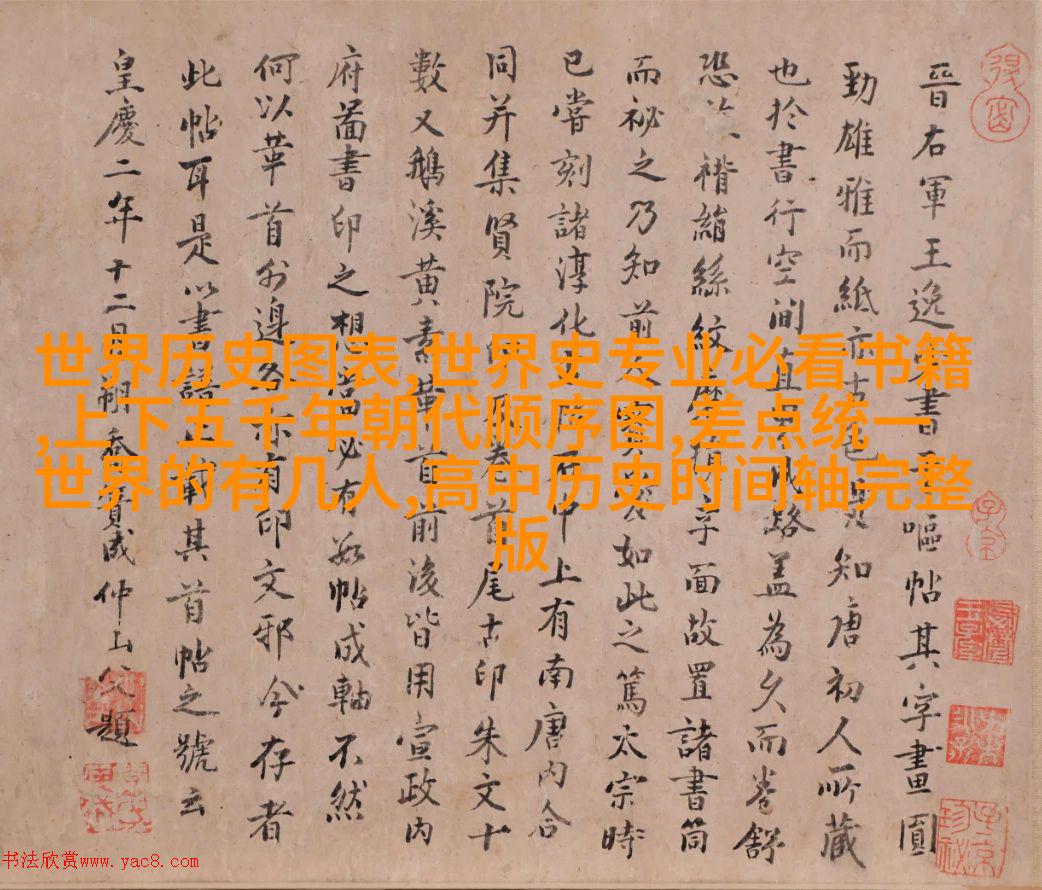 晉右軍王逸書嘔帖其字畫圓
勁雄雅而紙亦古色是知唐初人所藏
也於書行空間直路盖為久而卷舒
恐褙絹絲紋磨字面故置諸書筒
而祕之乃知前人如此之篤太宗時
已嘗刻諸淳化中上有南唐内合
同并集賢院卷首尾古印朱文十
數又鵝溪黄素前後皆用宣政内
府啚書印之想當必有數帖成軸不然
何以華首外邊亦有印文邪今存者
此帖耳是以書譜其首帖之號云
皇慶二年十二日朔喬簣成仲山父題
世界历史图表,世界史专业必看书籍
,上下五千年朝代顺序图,差点统一
世界的有几人,高中历史时间轴完整
版
书法欣赏www.yac8.com